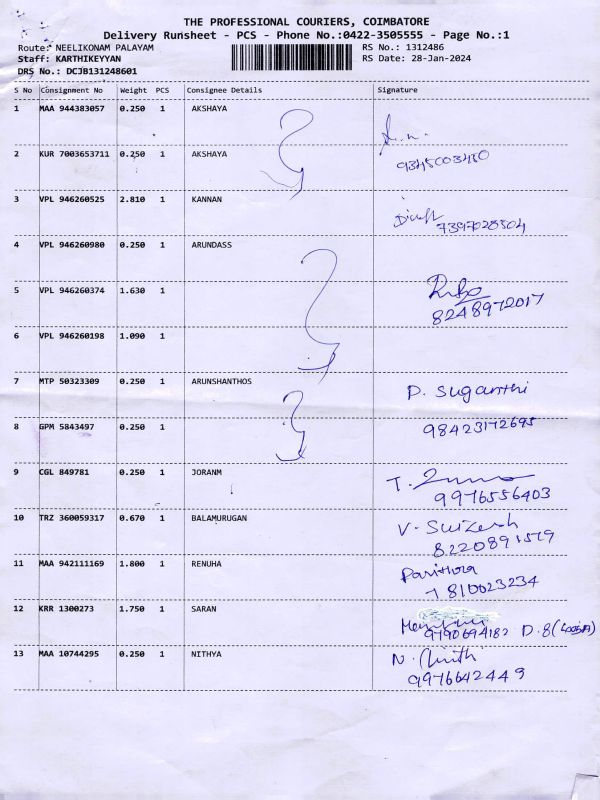 THE PROFESSIONAL COURIERS, COIMBATORE
Delivery Runsheet - PCS - Phone No.:0422-3505555 - Page No.:1
Route: NEELIKONAM PALAYAM RS No.: 1312486
Staff: KARTHIKEYYAN RS Date: 28-Jan-2024
DRS No.: DCJB131248601
S No Consignment No Weight PCS Consignee Details Signature
1 MAA 944383057 0.250 1 AKSHAYA
2 KUR 7003653711 0.250 1 AKSHAYA
3 VPL 946260525 2.810 1 KANNAN
7397028504
4 VPL 946260980 0.250 1 ARUNDASS
5 VPL 946260374 1.630 1
8248972017
6 VPL 946260198 1.090 1
7 MTP 50323309 0.250 1 ARUNSHANTHOS P. Suganthi
8 GPM 5843497 0.250 1 98423172695
9 CGL 849781 0.250 1 JORANM
9976556403
10 TRZ 360059317 0.670 1 BALAMURUGAN
8220891579
11 MAA 942111169 1.800 1 RENUHA
7810023234
12 KRR 1300273 1.750 1 SARAN
9790694182
13 MAA 10744295 0.250 1 NITHYA
9976642449